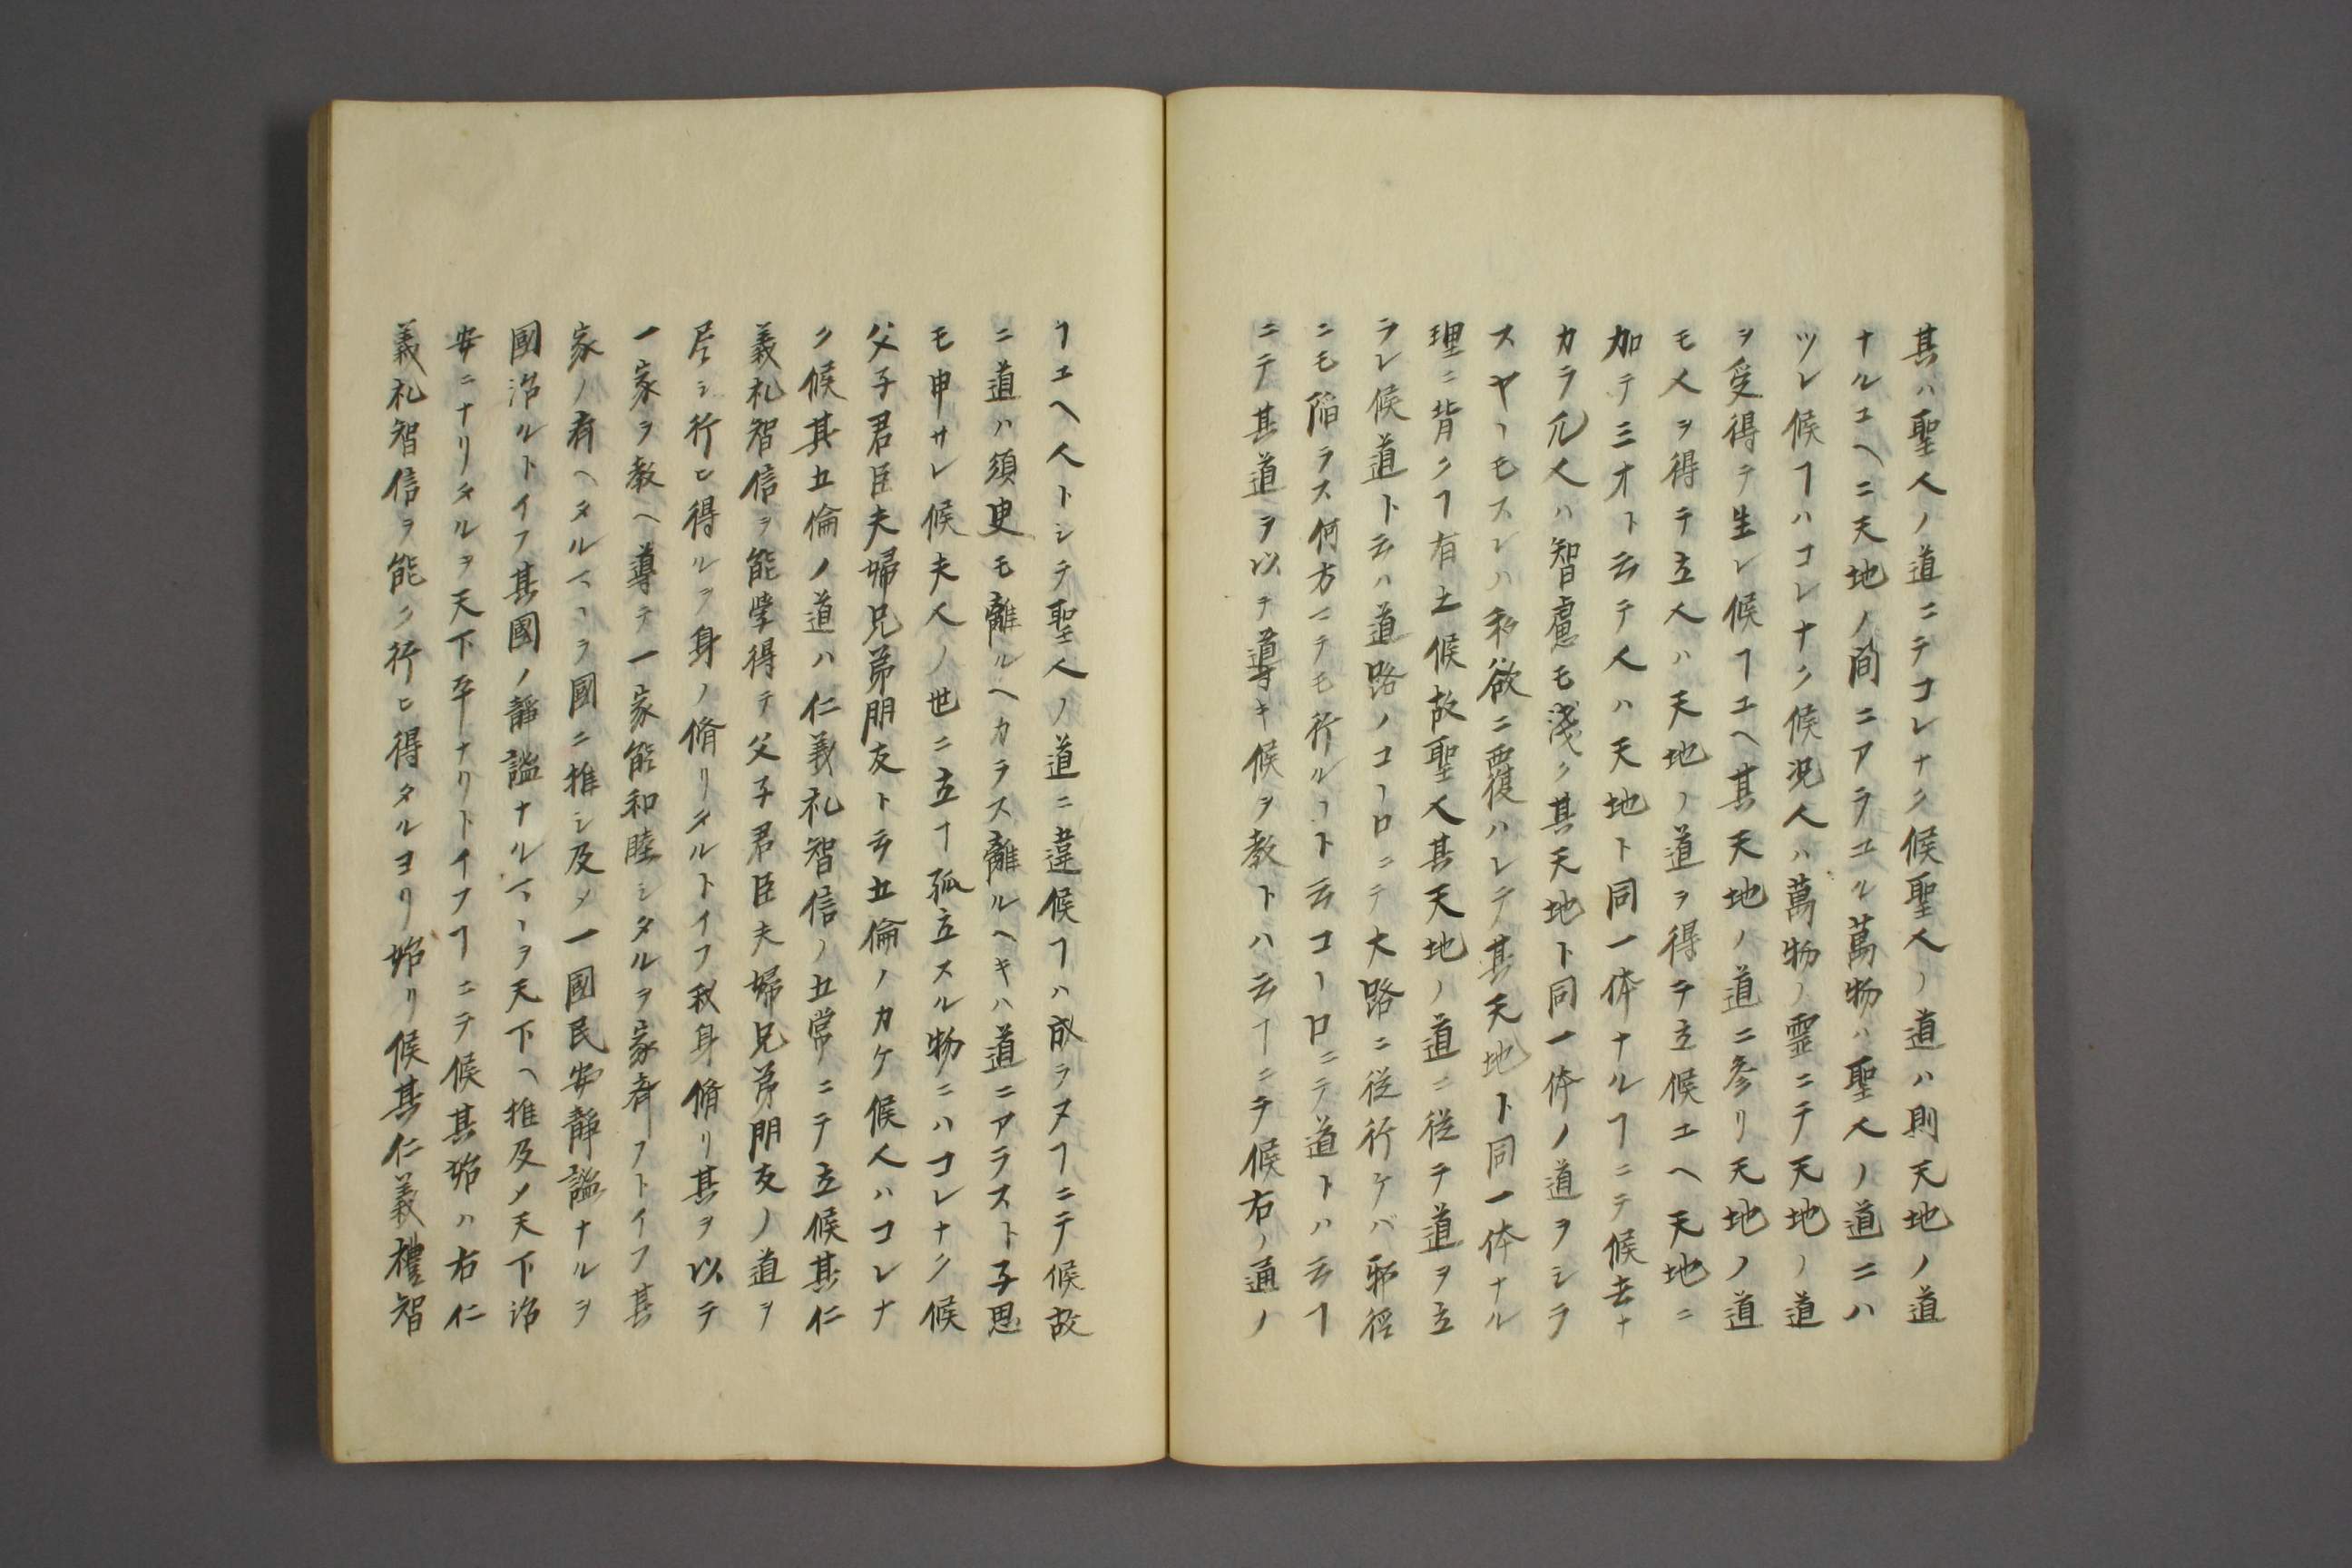 其ハ聖人ノ道ニテコレナク候聖人ノ道ハ則天地ノ道
ナルユヘニ天地ノ間ニアラユル萬物ハ聖人ノ道ニハ
ツレ候ヿハコレナク候況人ハ萬物ノ霊ニテ天地ノ道
ヲ受得テ生レ候ヿユヘ其天地ノ道ニ参リ天地ノ道
モ人ヲ得テ立人ハ天地ノ道ヲ得テ立候エヘ天地ニ
加テ三才ト云テ人ハ天地ト同一体ナルヿニテ候去ナ
カラ凢人ハ智慮モ淺ク其天地ト同一体ノ道ヲシラ
スヤヽモスレハ私欲ニ覆ハレテ其天地ト同一体ナル
理ニ背クヿ有之候故聖人其天地ノ道ニ從テ道ヲ立
ラレ候道ト云ハ道路ノコヽロニテ大路ニ從行ケバ邪徑
ニモ陥ラス何方ニテモ行ルヽト云コヽロニテ道トハ云ヿ
ニテ其道ヲ以テ導キ候ヲ教トハ云ヿニテ候右ノ通ノ
ヿエヘ人トシテ聖人ノ道ニ違候ヿハ成ラヌヿニテ候故
ニ道ハ須臾モ離ルヘカラス離ルヘキハ道ニアラスト子思
モ申サレ候夫人ノ世ニ立ヿ孤立スル物ニハコレナク候
父子君臣夫婦兄弟朋友ト云五倫ノカケ候人ハコレナ
ク候其五倫ノ道ハ仁義礼智信ノ五常ニテ立候其仁
義礼智信ヲ能学得テ父子君臣夫婦兄弟朋友ノ道ヲ
尽シ行ヒ得ルヲ身ノ脩リタルトイフ我身脩リ其ヲ以テ
一家ヲ教ヘ導テ一家能和睦シタルヲ家斉フトイフ其
家ノ斉ヘタルマヽヲ國ニ推シ及メ一國民安静謐ナルヲ
國治ルトイフ其國ノ静謐ナルマヽヲ天下ヘ推及メ天下治
安ニナリタルヲ天下平ナリトイフヿニテ候其始ハ右仁
義礼智信ヲ能ク行ヒ得タルヨリ始リ候其仁義禮智